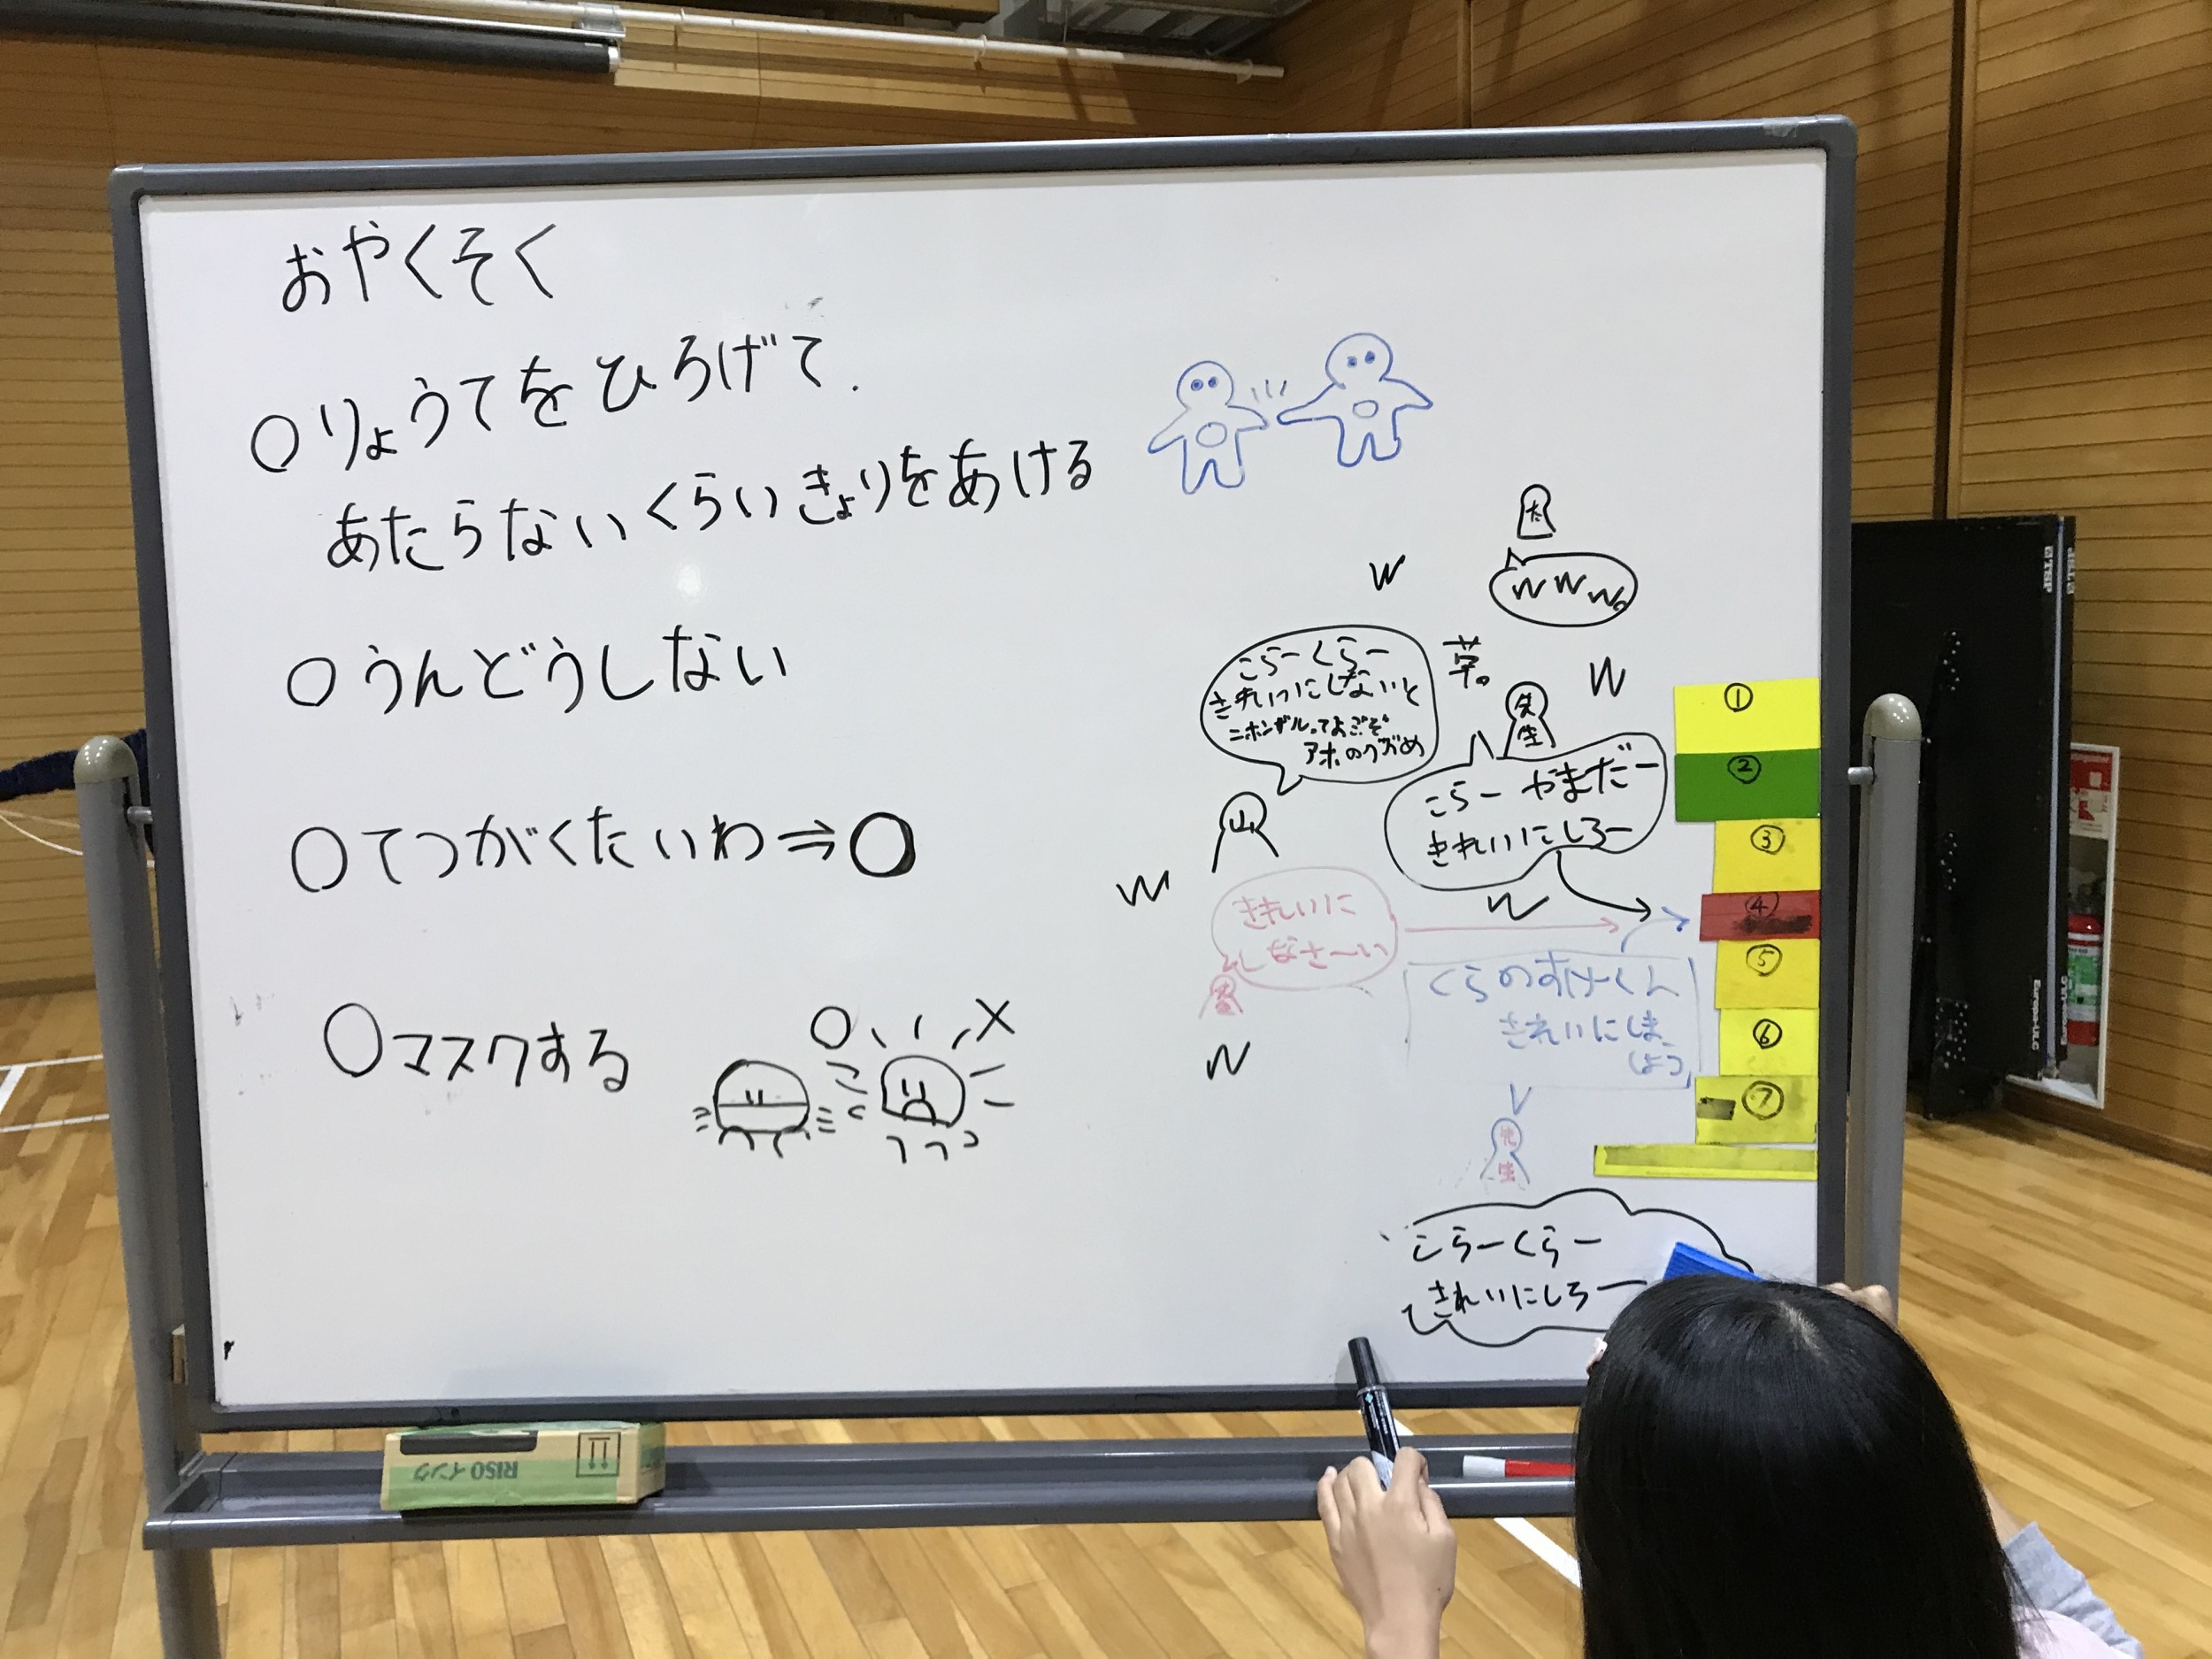 おやくそく
○りょうてをひろげて
あたらないくらいきょりをあける
○うんどうしない
○てつがくたいわ⇒○
○マスクする
○
×
太
W
WWW。
草。
W
こらーくらー
きれいにしないと
アホのクズめ
山
先生
こらー やまだー
きれいにしろー
W
W
きれいに
しなさ〜い
くらのすけくん
きれいにしま
しょう
W
先生
こらーくらー
きれいにしろー
①
②
③
④
⑤
⑥
⑦
RISOインク
TSP
Europa-ULC